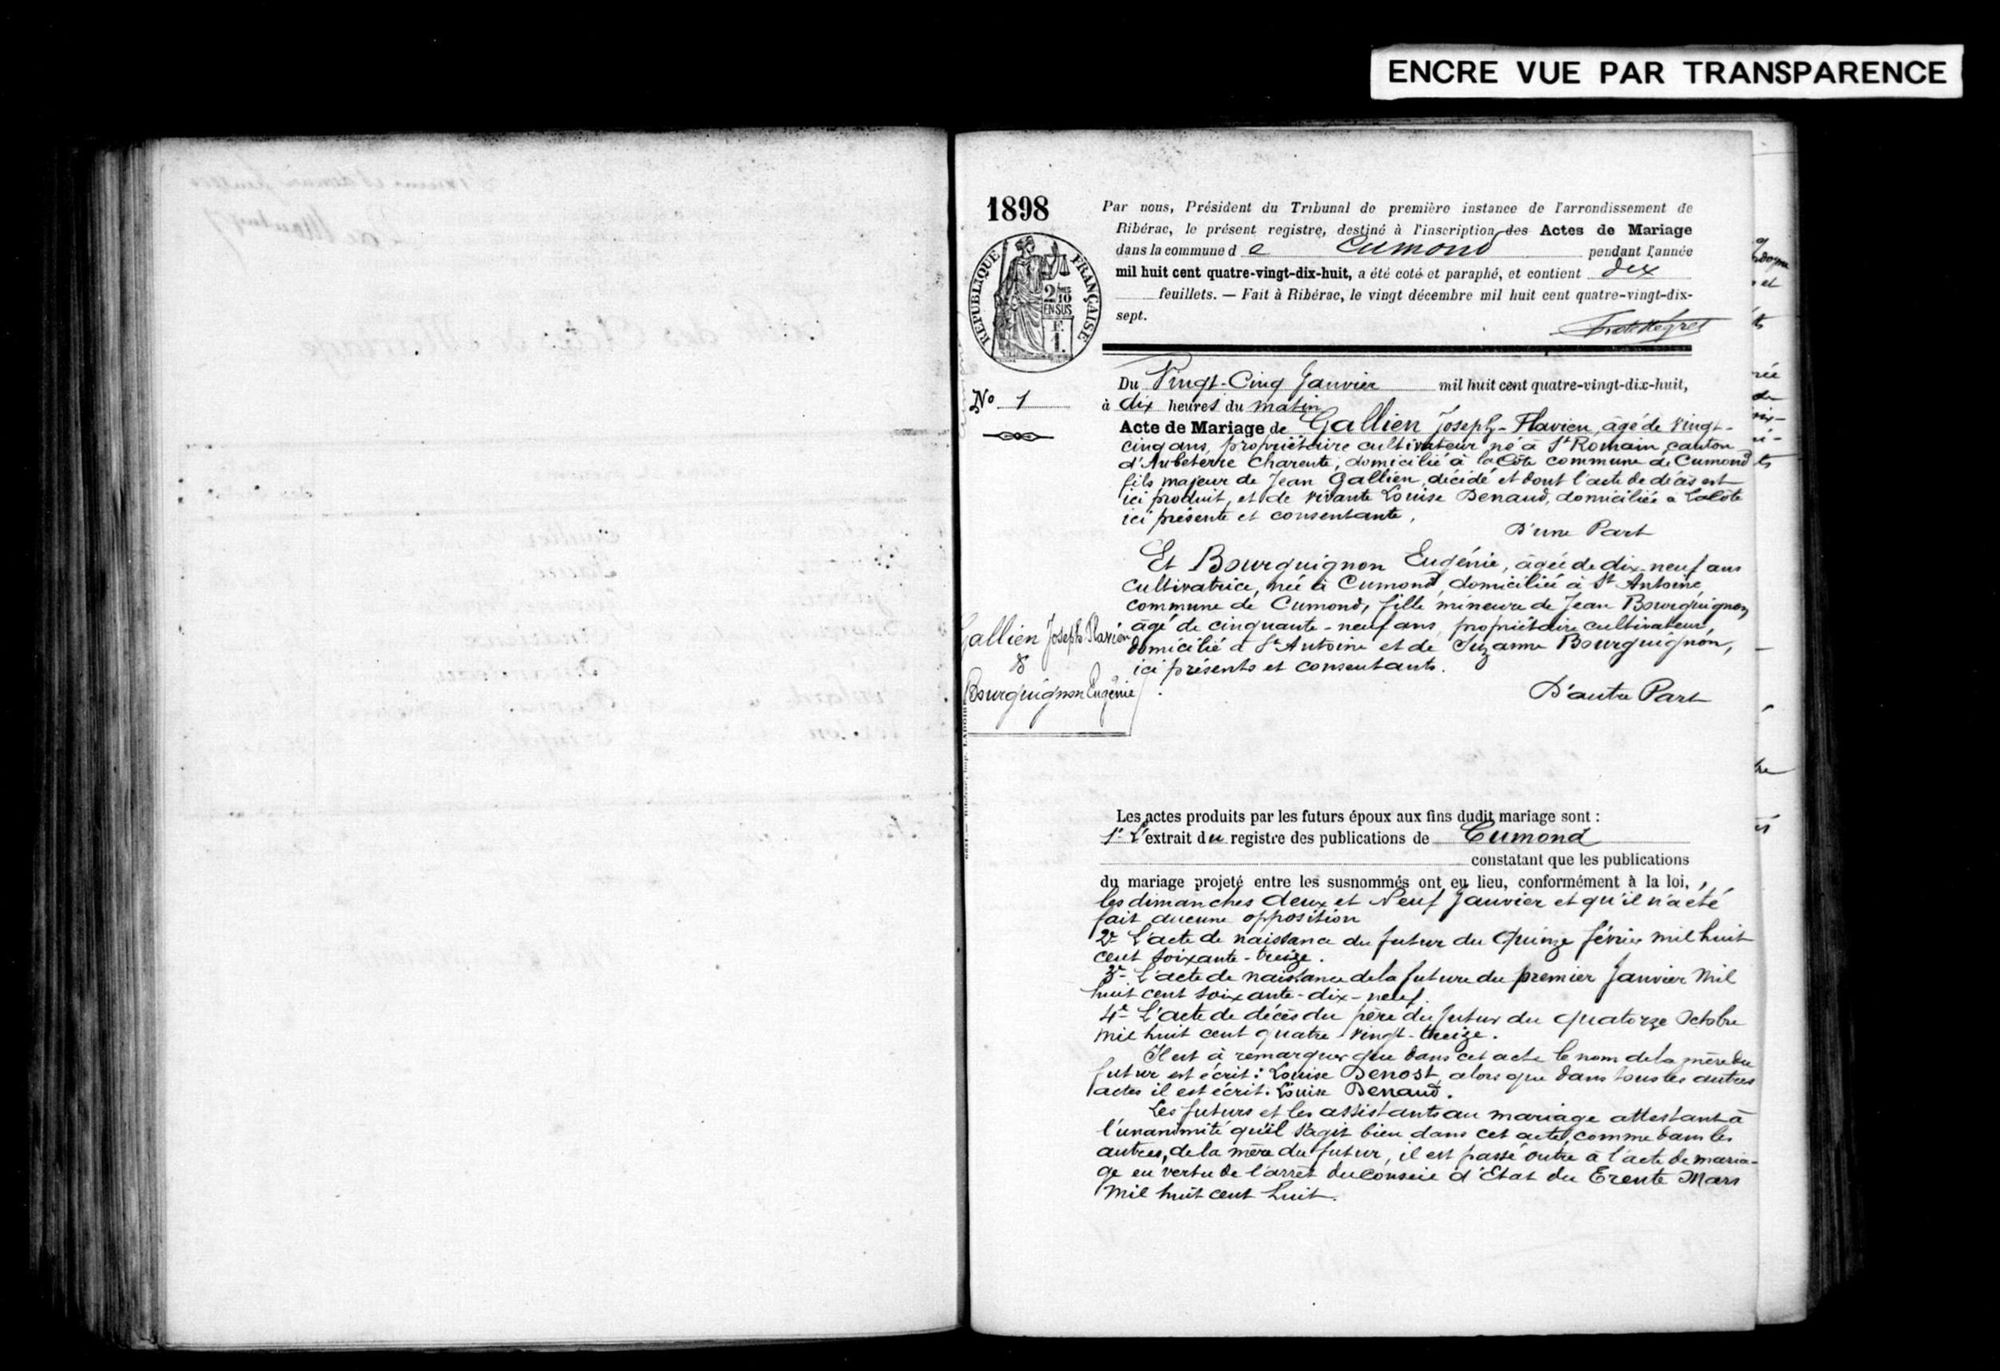 ENCRE VUE PAR TRANSPARENCE
1898
Par nous, Président du Tribunal de première instance de l'arrondissement de
Ribérac, le présent registre, destiné à l'inscription des Actes de Mariage
dans la commune d e Cumond pendant l'année
mil huit cent quatre-vingt-dix-huit, a été coté et paraphé, et contient dix
feuillets. — Fait à Ribérac, le vingt décembre mil huit cent quatre-vingt-dix-
sept.
RÉPUBLIQUE FRANÇAISE
2/10
EN SUS
F.
1.
No 1
Du Vingt-Cinq Janvier mil huit cent quatre-vingt-dix-huit,
à dix heures du matin
Acte de Mariage de Gallien Joseph-Flavien, âgé de vingt-
cinq ans, propriétaire cultivateur, né à St Romain, canton
d'Aubeterre Charente, domicilié à la Côte commune de Cumond
fils majeur de Jean Gallien, décidé et dont l'acte de décès est
ici produit, et de vivante Louise Denaud, domiciliée à Lacôte
ici présente et consentante,
D'une Part
Et Bourguignon Eugénie, âgée de dix-neuf ans
cultivatrice, née à Cumond, domiciliée à St Antoine
commune de Cumond, fille mineure de Jean Bourguignon,
âgé de cinquante-neuf ans, propriétaire cultivateur,
domicilié à St Antoine et de Suzanne Bourguignon,
ici présents et consentants.
D'autre Part
Gallien Joseph Flavien
&
Bourguignon Eugénie
Les actes produits par les futurs époux aux fins dudit mariage sont :
1° L'extrait du registre des publications de Cumond
constatant que les publications
du mariage projeté entre les susnommés ont eu lieu, conformément à la loi,
les dimanches deux et Neuf Janvier et qu'il n'a été
fait aucune opposition
2° L'acte de naissance du futur du Quinze février mil huit
cent soixante-treize.
3° L'acte de naissance de la future du premier Janvier Mil
huit cent soixante-dix-neuf.
4° L'acte de décès du père du futur du Quatorze Octobre
mil huit cent quatre vingt-treize.
Il est à remarquer que dans cet acte le nom de la mère du
futur est écrit : Louise Denost, alors que dans tous les autres
actes il est écrit : Louise Denaud.
Les futurs et les assistants au mariage attestant à
l'unanimité qu'il s'agit bien dans cet acte, comme dans les
autres, de la mère du futur, il est passé outre à l'acte de maria-
ge en vertu de l'arrêt du Conseil d'Etat du Trente Mars
mil huit cent huit.